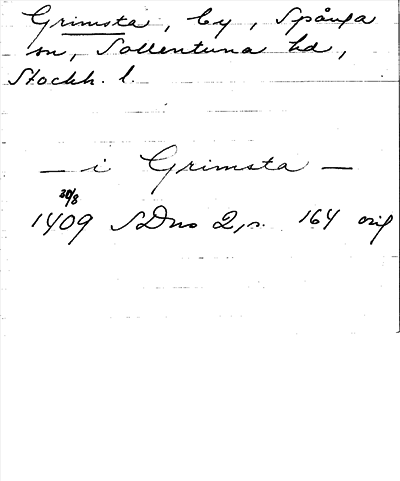 Grimsta, by, Spånga
sn, Sollentuna hd,
Stockh. l.
— i Grimsta —
30/8
1409 SDns 2, s. 164 orig